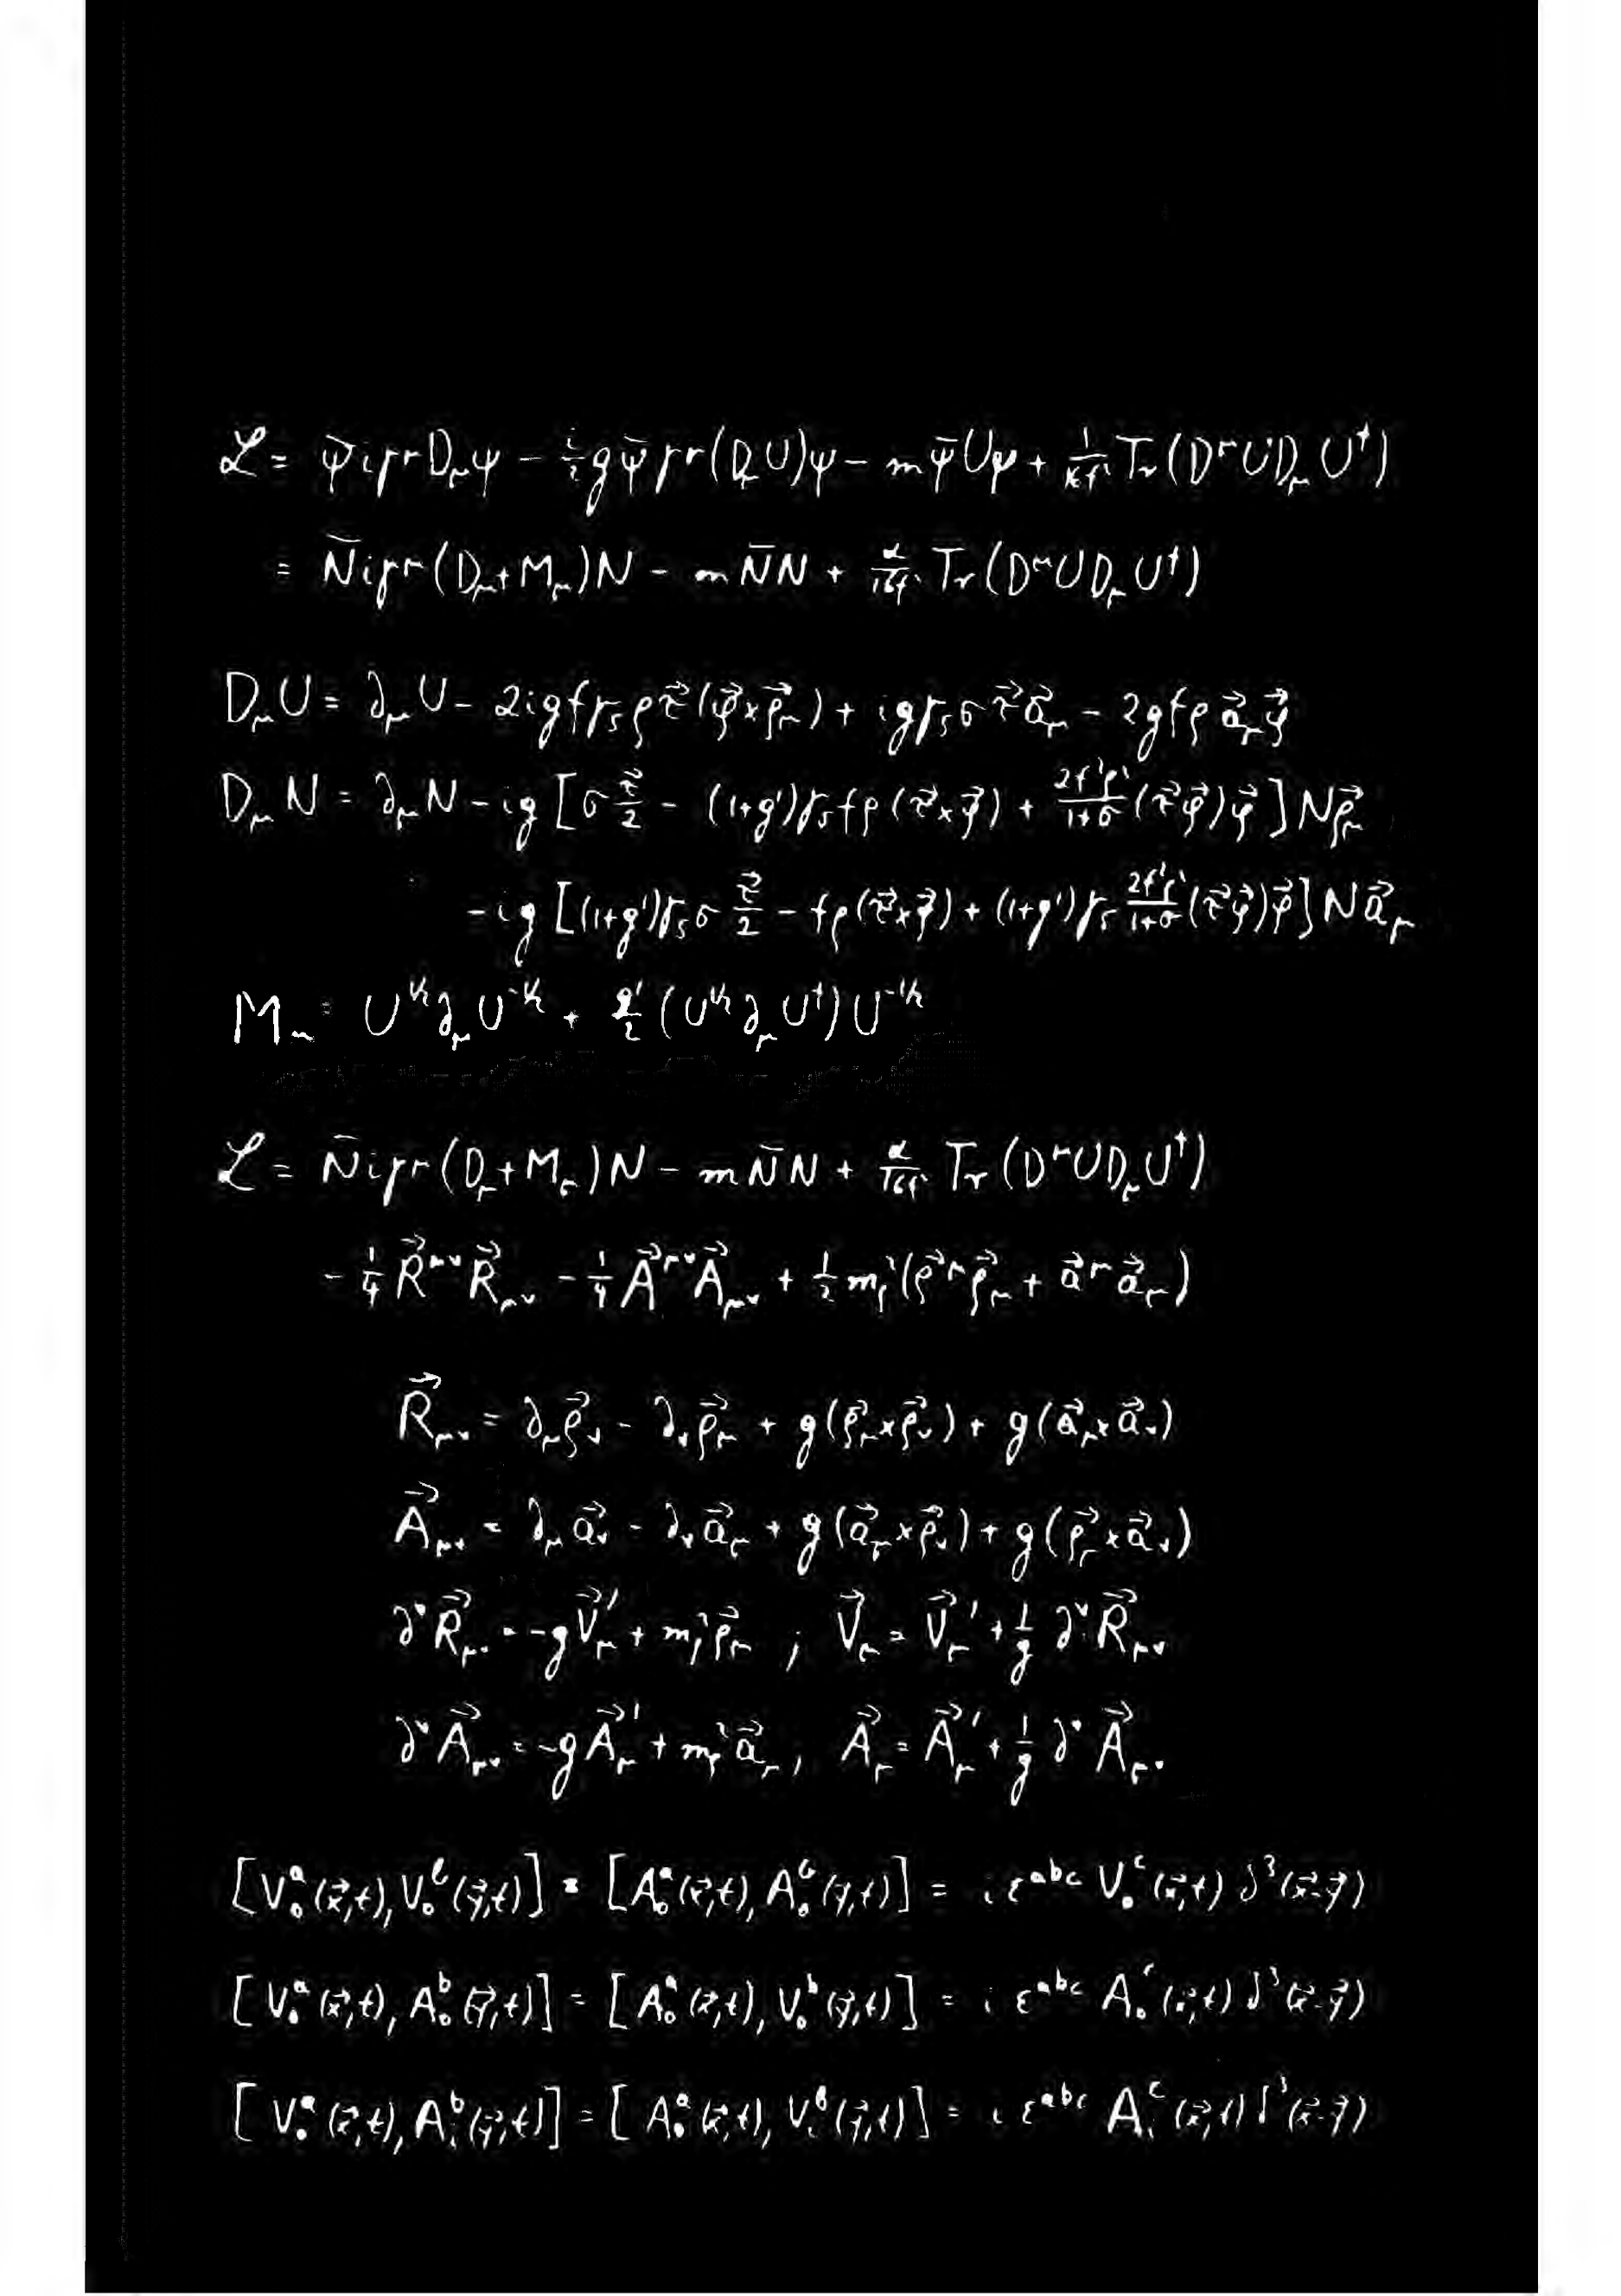 ℒ = ψ̄iγ^μD_μψ − i/2 gψ̄γ^μ(D_μU)ψ − mψ̄Uψ + 1/Kf² Tr(D^μUD_μU†)
= N̄iγ^μ(D_μ+M_μ)N − mN̄N + α/16f² Tr(D^μUD_μU†)
D_μU = ∂_μU − 2igfγ₅ρτ⃗(φ⃗×ρ⃗_μ) + igγ₅στ⃗a⃗_μ − 2gfρa⃗_μφ⃗
D_μN = ∂_μN − ig[σ τ⃗/2 − (1+g')γ₅fρ(τ⃗×φ⃗) + 2f²ρ²/1+σ (τ⃗φ⃗)φ⃗]Nρ⃗_μ
−ig[(1+g')γ₅σ τ⃗/2 − fρ(τ⃗×φ⃗) + (1+g')γ₅ 2f²ρ²/1+σ (τ⃗φ⃗)φ⃗]Na⃗_μ
M_μ = U^½∂_μU^-½ + g'/2 (U^½∂_μU†)U^-½
ℒ = N̄iγ^μ(D_μ+M_μ)N − mN̄N + α/16f² Tr(D^μUD_μU†)
− 1/4 R⃗^μν R⃗_μν − 1/4 A⃗^μν A⃗_μν + 1/2 m_ρ²(ρ⃗^μρ⃗_μ + a⃗^μa⃗_μ)
R⃗_μν = ∂_μρ⃗_ν − ∂_νρ⃗_μ + g(ρ⃗_μ×ρ⃗_ν) + g(a⃗_μ×a⃗_ν)
A⃗_μν = ∂_μa⃗_ν − ∂_νa⃗_μ + g(a⃗_μ×ρ⃗_ν) + g(ρ⃗_μ×a⃗_ν)
∂^νR⃗_μν = −gV⃗'_μ + m_ρ²ρ⃗_μ ; V⃗_μ = V⃗'_μ + 1/g ∂^νR⃗_μν
∂^νA⃗_μν = −gA⃗'_μ + m_ρ²a⃗_μ, A⃗_μ = A⃗'_μ + 1/g ∂^νA⃗_μν
[V₀^a(x⃗,t), V₀^b(y⃗,t)] = [A₀^a(x⃗,t), A₀^b(y⃗,t)] = iε^abc V₀^c(x⃗,t) δ³(x⃗-y⃗)
[V₀^a(x⃗,t), A₀^b(y⃗,t)] = [A₀^a(x⃗,t), V₀^b(y⃗,t)] = iε^abc A₀^c(x⃗,t) δ³(x⃗-y⃗)
[V₀^a(x⃗,t), A_i^b(y⃗,t)] = [A₀^a(x⃗,t), V_i^b(y⃗,t)] = iε^abc A_i^c(x⃗,t) δ³(x⃗-y⃗)